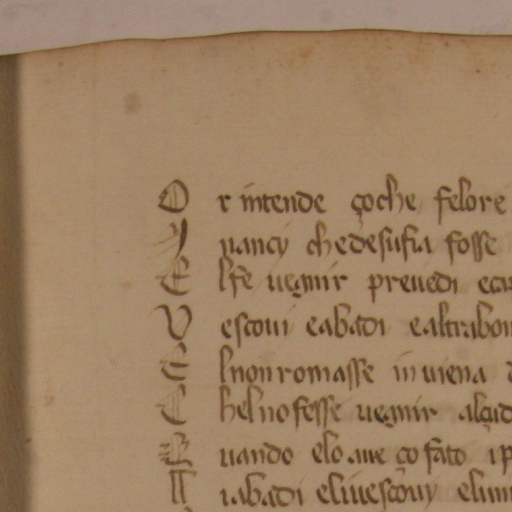 O r intende çoche felore
I nancy chedesufia fosse
E lfe uegnir preuedi
V escoui eabadi ealtrabon
E lnonromasse inuiena
C helnofesse uegnir alçid
Q uando eloaue ço fato
I iabadi eliuescouy elum